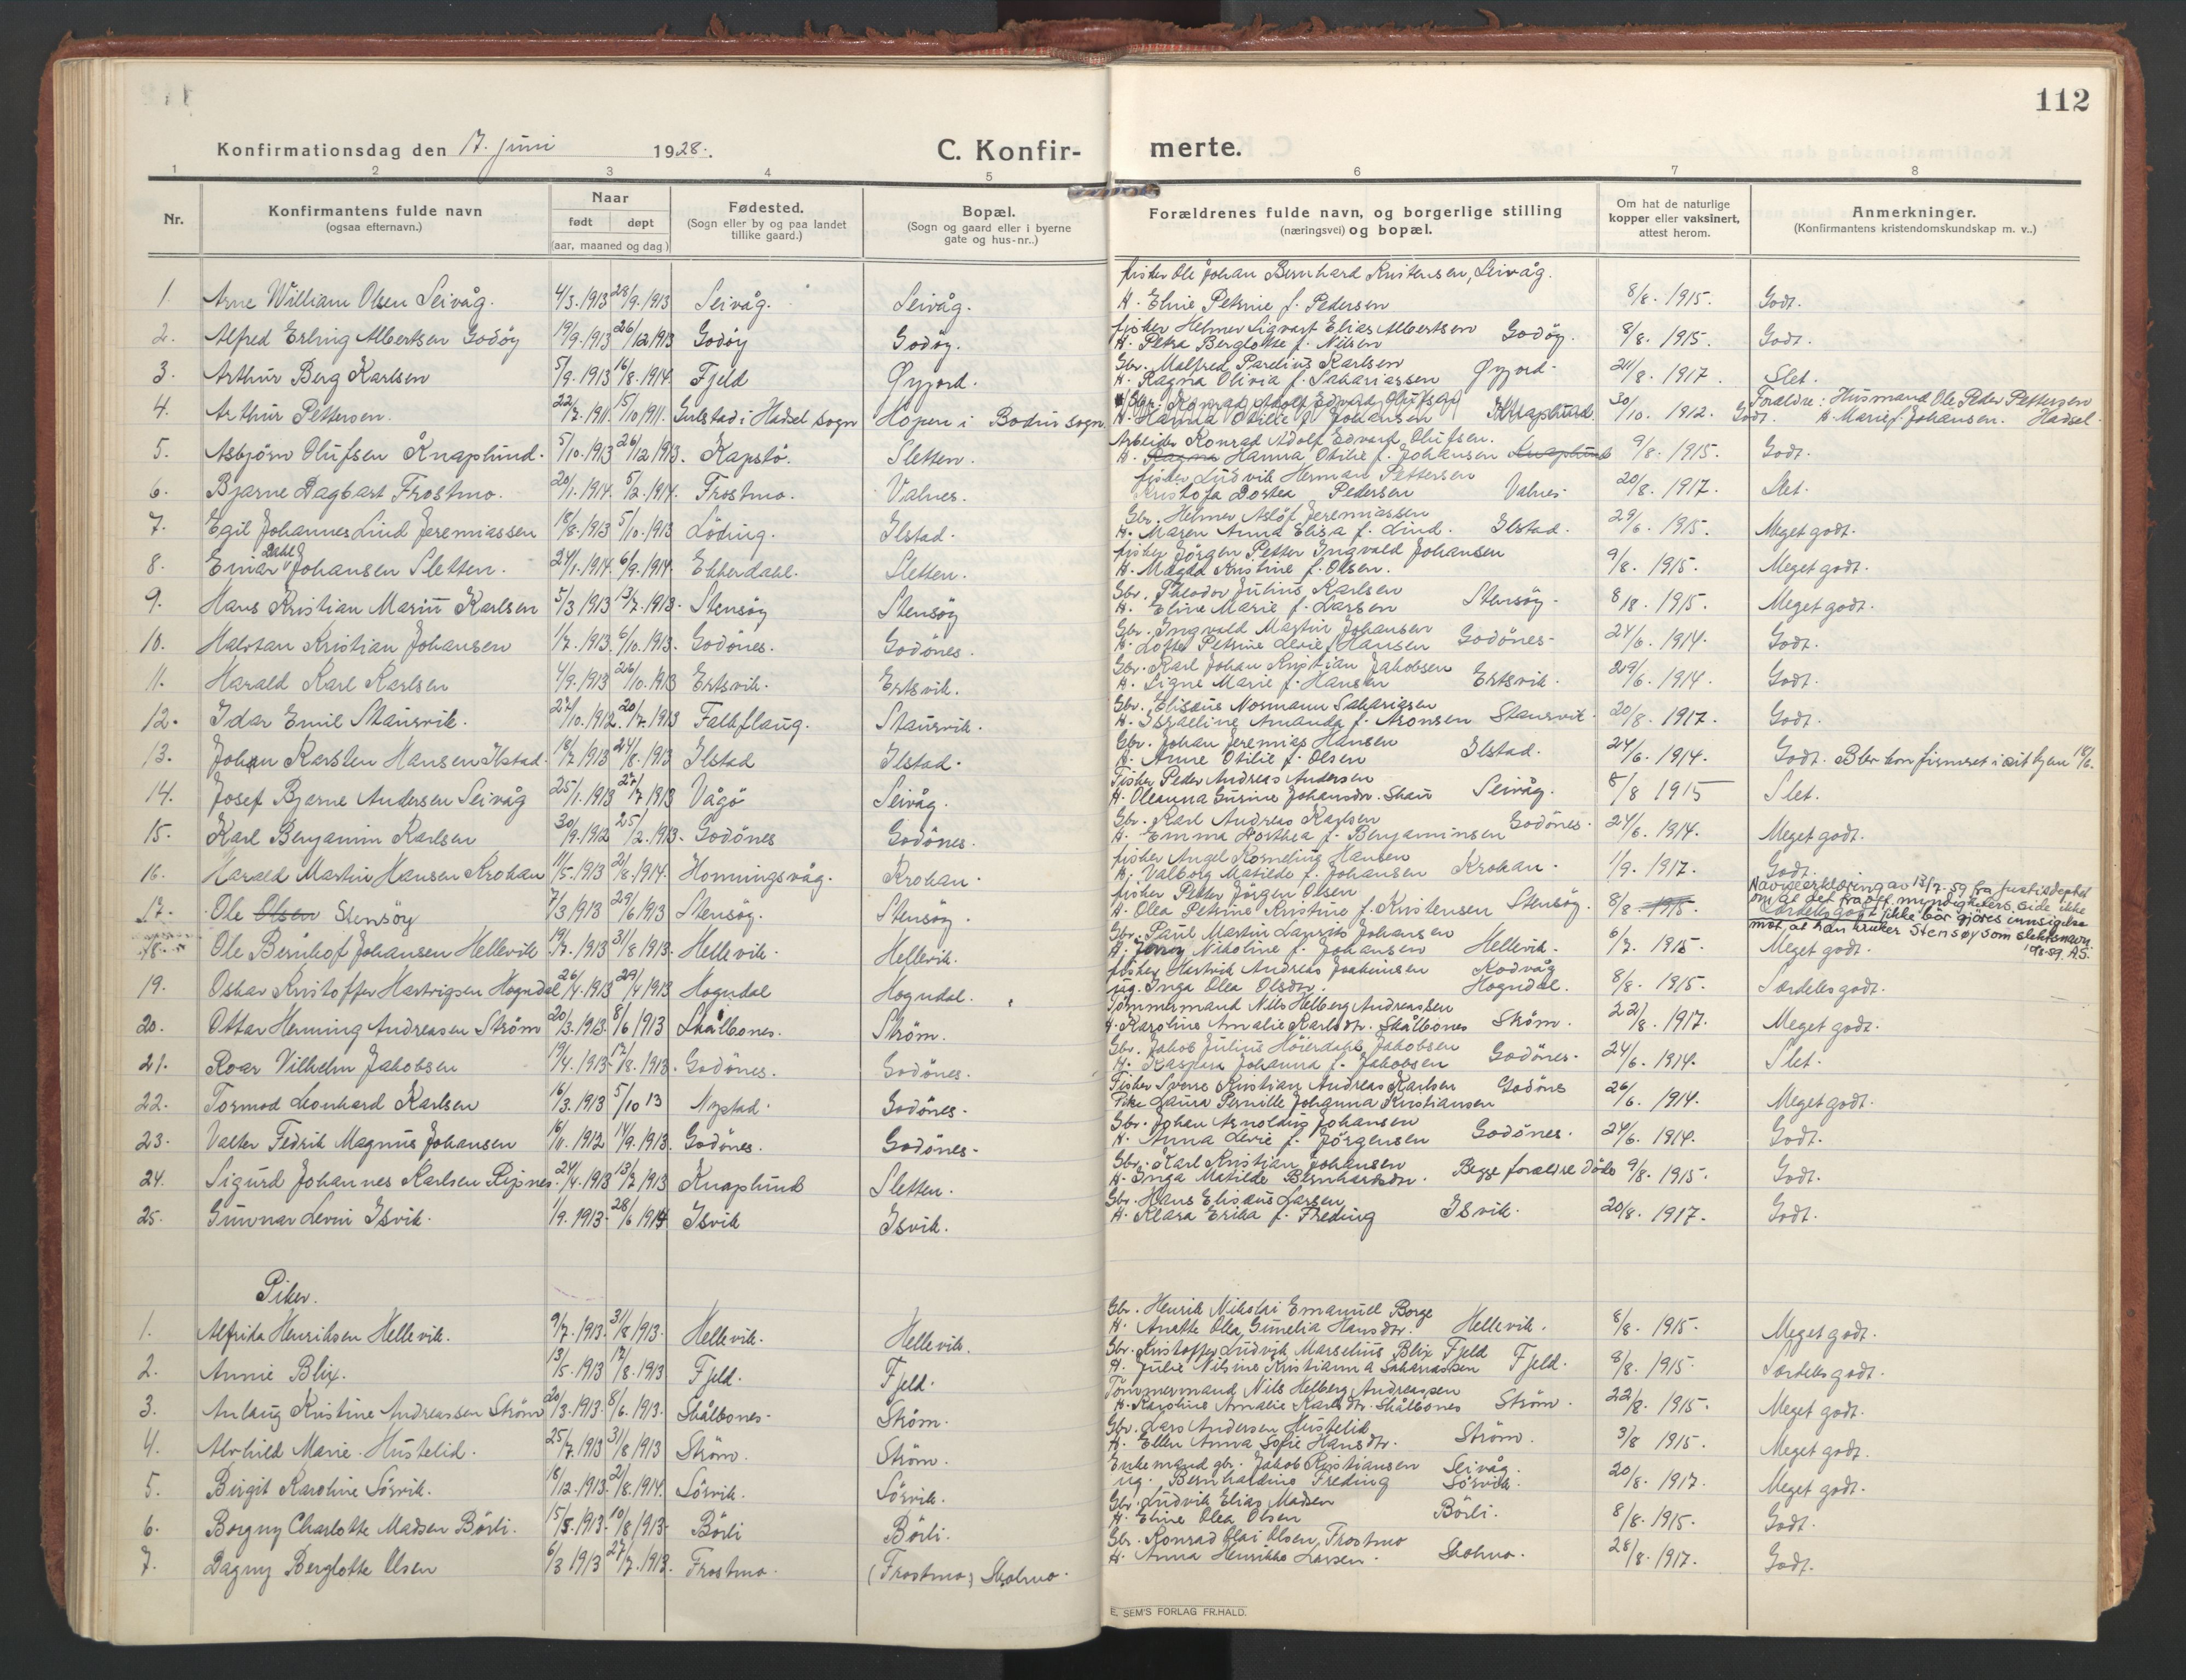 112
Konfirmationsdag den 17. juni 1928.
C. Konfirmerte.
1 2 3 4 5 6 7 8
Nr.
Konfirmantens fulde navn
(ogsaa efternavn.)
Naar
født døpt
(aar, maaned og dag)
Fødested.
(Sogn eller by og paa landet
tillike gaard.)
Bopæl.
(Sogn og gaard eller i byerne
gate og hus-nr..)
Forældrenes fulde navn, og borgerlige stilling
(næringsvei) og bopæl.
Om hat de naturlige
kopper eller vaksinert,
attest herom.
Anmerkninger.
(Konfirmantens kristendomskundskap m. v..)
fisker Ole Johan Bernhard Kristensen, Seivåg.
1. Arne William Olsen Seivåg. 4/3.1913 28/9.1913 Seivåg. Seivåg. H. Eline Petrine f. Pedersen 8/8. 1915. Godt.
fisker Helmer Sigvart Elias Albertsen Godöy.
2. Alfred Erling Albertsen Godöy 19/9.1913 26/12 1913 Godöy Godöy. H. Petra Berglotte f. Nilsen 8/8. 1915. Godt.
Gbr. Malfred Parelius Karlsen Øyjord.
3. Arthur Berg Karlsen 5/9.1913 16/8.1914 Fjeld Øyjord. H. Ragna Olivia f. Sakariassen 24/8. 1917. Slet.
Gbr. Konrad Adolf Edvard Olufsen Forældre: Husmand Ole Peder Pettersen
4. Arthur Pettersen. 22/7.1911. 15/10 1911. Gulstad i Hadsel sogn Hopen i Bodin sogn. H. Hanna Otilie f. Johansen Knaplund 30/10. 1912. Godt. H. Marie f. Johansen. Hadsel.
Arbeider Konrad Adolf Edvard Olufsen.
5. Asbjörn Olufsen Knaplund. 5/10.1913 26/12 1913. Kapstö. Sletten. H. Ragna Hanna Otilie f. Johansen Knaplund 9/8. 1915. Godt.
fisker Ludvik Herman Pettersen
6. Bjarne Dagbart Frostmo. 20/1.1914. 5/2.1914. Frostmo. Valnes. Kristofa Dortea Pedersen Valnes 20/8. 1917. Slet.
Gbr. Helmer Aslöf Jeremiassen
7. Egil Johannes Lind Jeremiassen 18/8.1913 5/10.1913 Löding. Ilstad. H. Maren Anna Elisa f. Lind. Ilstad. 29/6. 1915. Meget godt.
fisker Jörgen Petter Ingvald Johansen
8. Einar Dahl Johansen Sletten. 24/1.1914. 6/9.1914. Ekkerdahl. Sletten. H. Magda Kristine f. Olsen. 9/8. 1915. Meget godt.
Gbr. Theodor Julius Karlsen
9. Hans Kristian Mariu Karlsen 5/3 1913 13/7.1913. Stensöy Stensöy H. Eline Marie f. Larsen Stensöy. 8/8. 1915. Meget godt.
Gbr. Ingvald Martin Johansen
10. Halvtan Kristian Johansen 1/7.1913. 6/10.1913. Godönes. Godönes. H. Lotte Petrine Levie f. Hansen Godönes. 24/6. 1914. Godt.
Gbr. Karl Johan Kristian Jakobsen
11. Harald Karl Karlsen 4/9.1913 26/10.1913 Ertsvik. Ertsvik. H. Signe Marie f. Hansen Ertsvik. 29/6. 1914. Godt.
Gbr. Elisæus Normann Sakariasen
12. Idar Emil Stausvik. 27/10.1912. 20/7.1913 Falkflaug. Stausvik. H. Israeline Amanda f. Aronsen Stausvik. 20/8. 1917. Godt.
Gbr. Johan Jeremias Hansen
13. Johan Karsten Hansen Ilstad. 18/7 1913 24/8.1913 Ilstad Ilstad. H. Anne Otilie f. Olsen Ilstad. 24/6. 1914. Godt. Blev konfirmeret i sit hjem 18/6.
Fisker Peder Andreas Andersen
14. Josef Bjarne Andersen Seivåg 25/1.1913 27/7 1913 Vågö Seivåg. H. Oleanna Gurine Johansdr. Skau Seivåg. 8/8 1915 Slet.
Gbr. Karl Andreas Karlsen
15. Karl Benjamin Karlsen 30/9.1912 25/2.1913. Godönes Godönes. H. Emma Dorthea f. Benjaminsen Godönes. 24/6. 1914. Meget godt.
fisker Angel Kornelius Hansen
16. Harald Martin Hansen Krokan 11/5.1913 2/8.1914. Honningsvåg. Krokan. H. Valborg Matilde f. Johansen Krokan. 1/9. 1917. Godt.
fisker Petter Jörgen Olsen
17. Ole Olsen Stensöy 7/3 1913 29/6 1913 Stensöy. Stensöy. H. Olea Petrine Kristine f. Kristensen Stensöy. 8/8. 1915. Særdeles godt.
Navneerklæring av 13/7-59 fra justisdeptet
om at det fra off. myndigheters side ikke
ikke bör gjöres innsigelse
mot, at han bruker Stensøy som slektsnavn.
Gbr. Paul Martin Laurits Johansen
18. Ole Bernhof Johansen Hellevik 19/7.1913 31/8 1913. Hellevik. Hellevik. H. Jenny Nikoline f. Johansen Hellevik. 6/7. 1915. Meget godt.
fisker Hartvik Andreas Joakimsen Kodvåg
19. Oskar Kristoffer Hartvigsen Hogndal 26/4.1913 29/4 1913 Hogndal Hogndal. ug. Inga Olea Olsdtr. Hogndal. 8/8. 1915. Særdeles godt.
Tömmermand Nils Helberg Andreassen
20. Ottar Henning Andreasen Ström 20/3.1913. 8/6 1913 Skålbones. Ström. H. Karoline Amalie Karlsdtr. Skålbones Ström. 22/8. 1917. Meget godt.
Gbr. Jakob Julius Höierdahl Jakobsen
21. Roar Vilhelm Jakobsen 19/4.1913. 17/8.1913. Godönes. Godönes. H. Kaspara Johanna f. Jakobsen Godönes. 24/6. 1914. Slet.
Fisker Sverre Kristian Andreas Karlsen Godönes
22. Tormod Leonhard Karlsen 16/3.1913 5/10 13 Nystad. Godönes. Pike Laura Pernille Johanna Kristiansen 26/6. 1914. Meget godt.
Gbr. Johan Arnoldus Johansen
23. Valter Fedrik Magnus Johansen 16/11.1912 14/9.1913. Godönes. Godönes. H. Anna Levie f. Jörgensen Godönes. 24/6. 1914. Godt.
Gbr. Karl Kristian Johansen
24. Sigurd Johannes Karlsen Ripnes. 24/4.1913 13/7 1913 Knaplund Sletten. H. Inga Matilde Bernhardsdtr. Begge forældre döde 9/8. 1915. Godt.
Gbr. Hans Elisæus Larsen
25. Gunnar Levin Isvik. 1/9.1913. 28/6 1914 Isvik Isvik. H. Klara Erika f. Freding Isvik. 20/8. 1917. Godt.
Piker.
Gbr. Henrik Nikolai Emanuel Borge
1. Alfrida Henriksen Hellevik. 9/7.1913. 31/8 1913. Hellevik. Hellevik. H. Anette Olea Gunelia Hansdtr. Hellevik. 8/8. 1915. Meget godt.
Gbr. Kristoffer Ludvik Marselius Blix Fjeld
2. Annie Blix. 13/5.1913 17/8.1913 Fjeld. Fjeld. H. Julie Nilsine Kristianna Sakariassen Fjeld. 8/8. 1915. Særdeles godt.
Tömmermand Nils Helberg Andreassen
3. Anlaug Kristine Andreassen Ström 20/3.1913. 8/6.1913. Skålbones. Ström. H. Karoline Amalie Karlsdtr. Skålbones Ström. 22/8. 1915. Meget godt.
Gbr. Lars Andersen Hustelid
4. Alvhild Marie Hustelid. 25/7.1913 31/8 1913 Ström. Ström. H. Ellen Anna Sofie Hansdtr. Ström. 3/8 1915. Meget godt.
Enkemand gbr. Jakob Kristiansen Seivåg.
5. Birgit Karoline Sörvik. 18/12.1913. 2/8.1914. Sörvik. Sörvik. ug. Bernhardine Freding Sörvik. 20/8. 1917. Meget godt.
Gbr. Ludvik Elias Madsen
6. Borgny Charlotte Madsen Börli. 15/5.1913. 10/8 1913. Börli Börli. H. Eline Olea Olsen Börli. 8/8. 1915. Godt.
Gbr. Konrad Olai Olsen, Frostmo
7. Dagny Berglotte Olsen 6/3 1913 27/7.1913. Frostmo. (Frostmo) Skolmo. H. Anna Henrikke Larsen. Skolmo. 28/8. 1917. Godt.
E. SEM'S FORLAG FR.HALD.